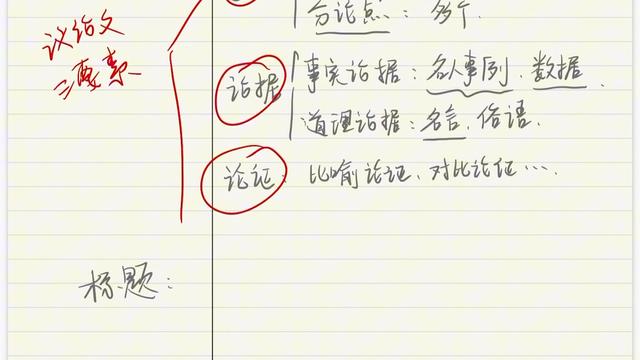 分论点：多个.
议论文
三要素
论据
事实论据：名人事例、数据.
道理论据：名言、俗语.
论证：比喻论证、对比论证….
标题：